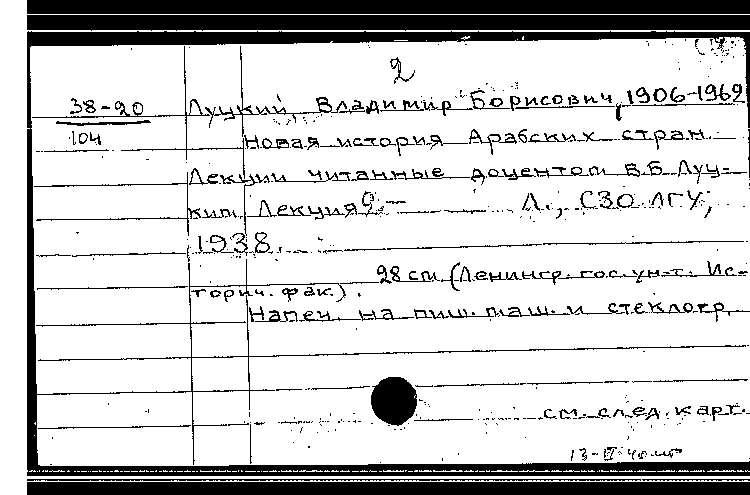 2
38-20
104
Луцкий, Владимир Борисович, 1906-1969
Новая история Арабских стран
Лекции читанные доцентом В.Б. Луц-
ким. Лекция 9.— Л., СЗО ЛГУ,
1938.
28 см (Ленингр. гос. ун-т. Ис-
торич. фак.).
Напеч. на пиш. маш. и стеклогр.
см. след. карт.